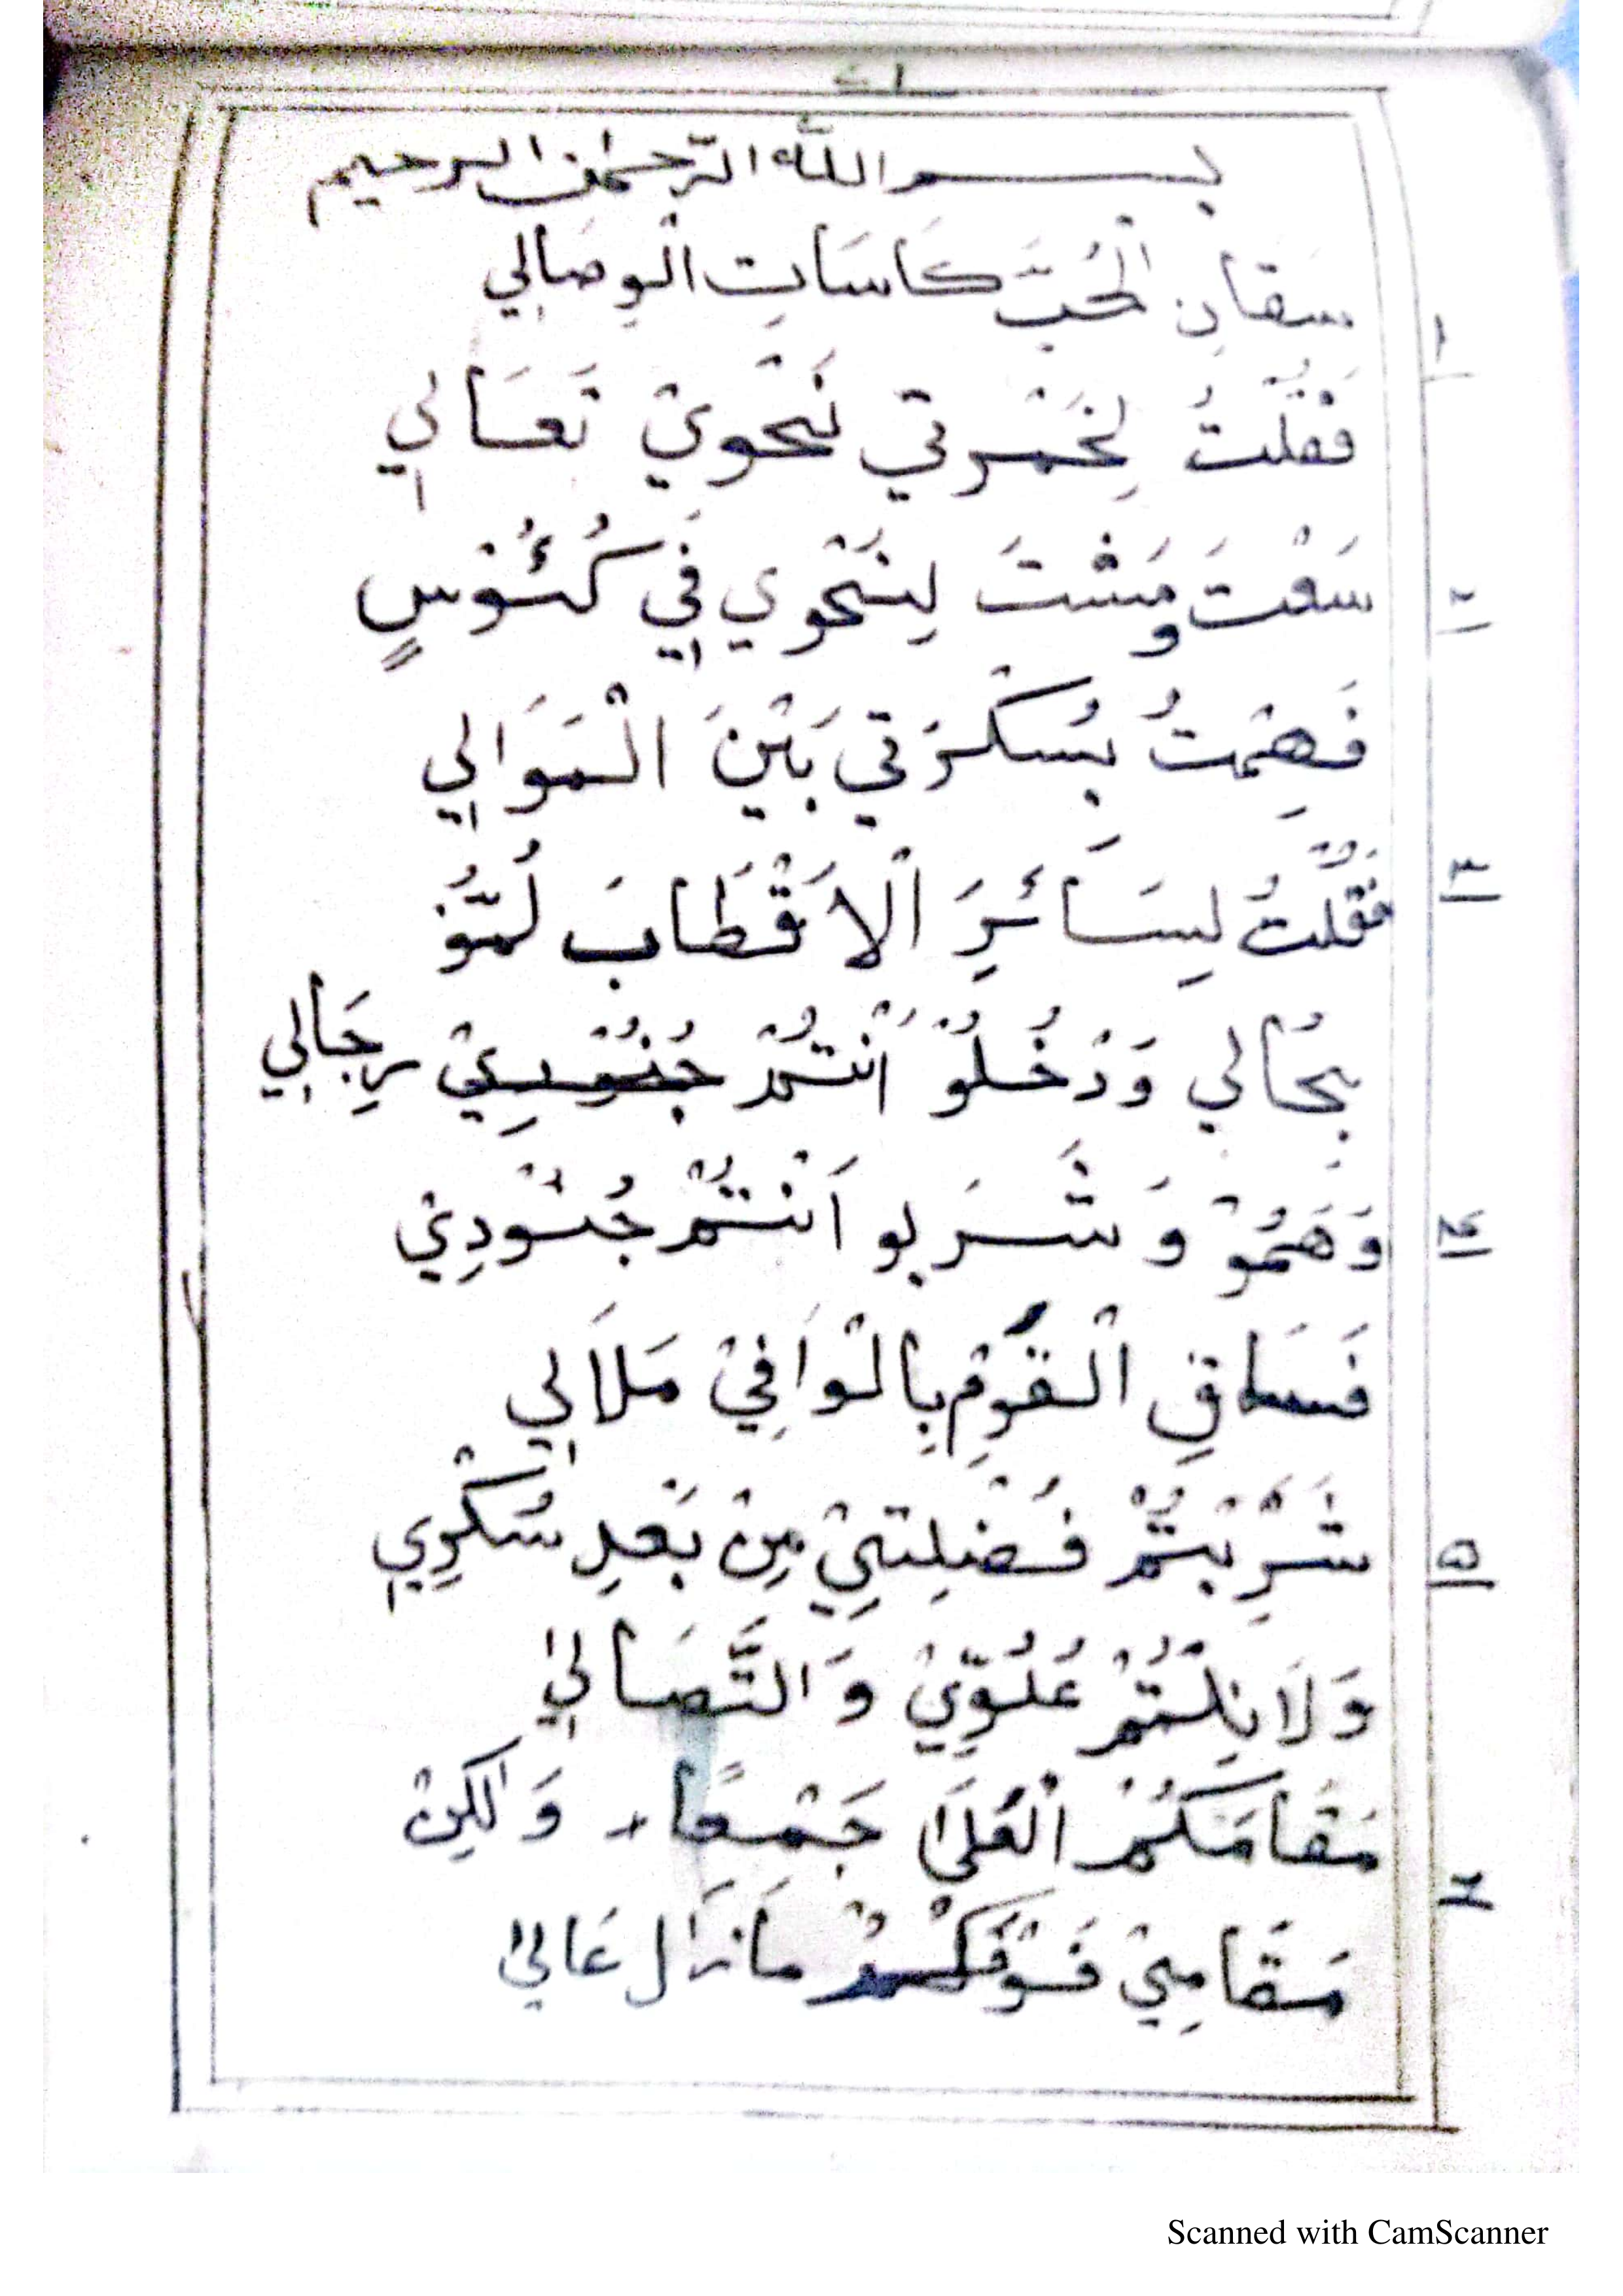 بسم الله الرّحمٰن الرحيم
سَقَانِ الْحُبَّ كَاسَاتِ الْوِصَالِي
١
فَقُلْتُ لِخَمْرَتِي نَحْوِيْ تَعَالِي
سَعْتَ وَمَشْتَ لِنَحْوِي فِي كُئُوْسٍ
٢
فَهِمْتُ بِسُكْرَتِي بَيْنَ الْمَوَالِي
فَقُلْتُ لِسَائِرَ الْاَقْطَابَ لُمُّوْ
٣
بِحَالِي وَدْخُلُوْ اَنْتُمْ جُنُوْدِيْ رِجَالِي
وَهَمُّوْ وَشْرَبُو اَنْتُمْ جُنُوْدِيْ
٤
فَسَاقِ الْقَوْمِ بِالْوَافِيْ مَلَالِي
شَرِبْتُمْ فُضْلَتِيْ مِنْ بَعْدِ سُكْرِي
٥
وَلَا نِلْتُمْ عُلُوِّيْ وَالتَّصَالِيْ
مَقَامَكُمْ الْعُلَىٰ جَمْعًا وَلٰكِنْ
٦
مَقَامِيْ فَوْقَكُمْ مَازَال عَالِيْ
Scanned with CamScanner